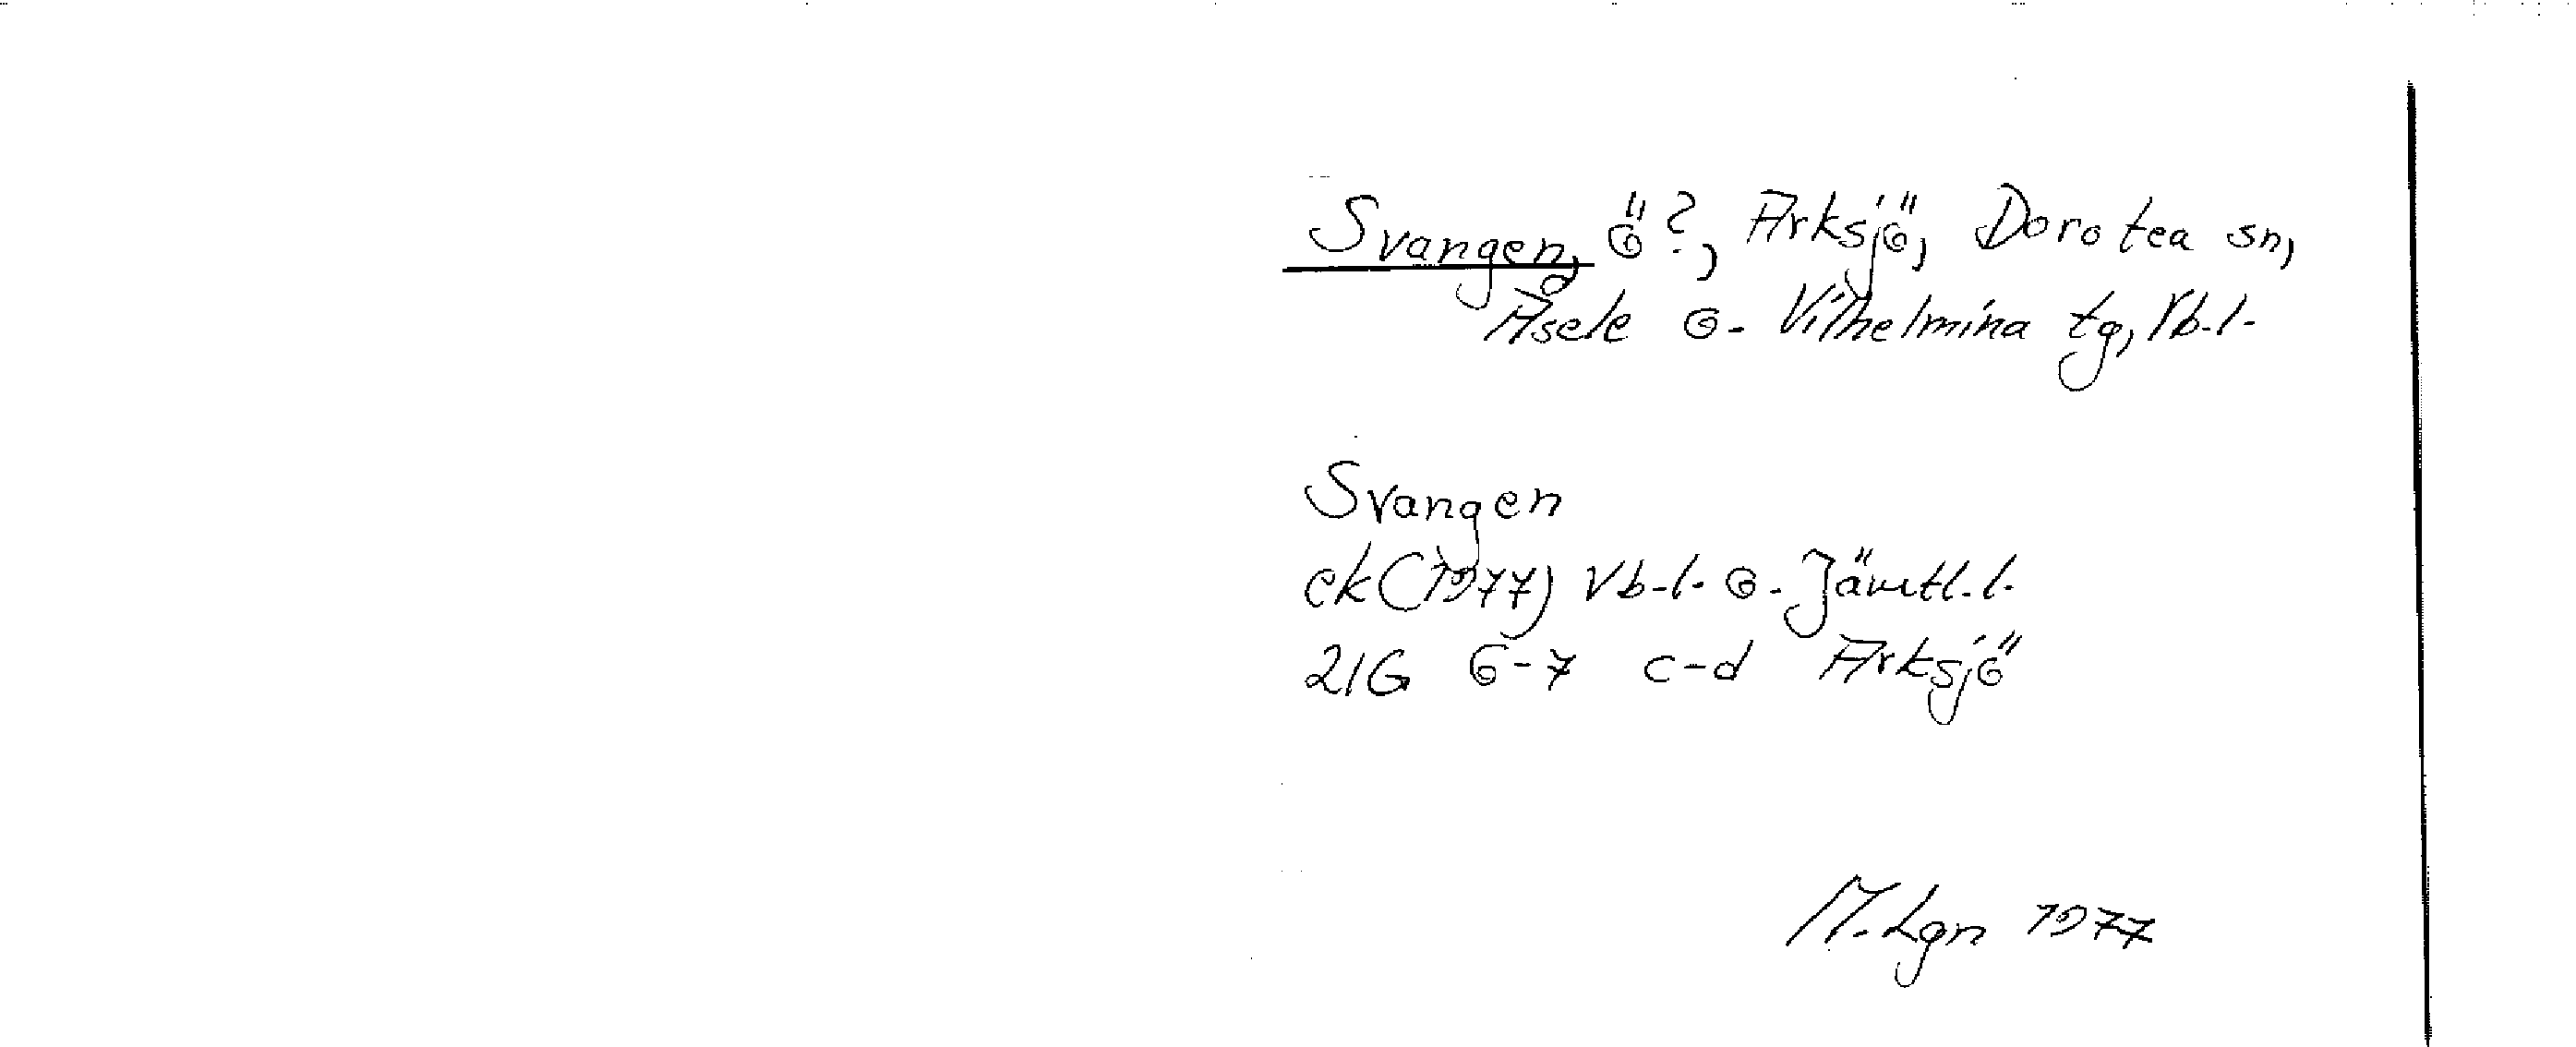 Svangen, ö?, Arksjö, Dorotea sn,
Åsele o. Vilhelmina tg, Vb.l.
Svangen
ek (1977) Vb.l. o. Jämtl.l.
21G 6-7 c-d Arksjö
M. Lgn 1977